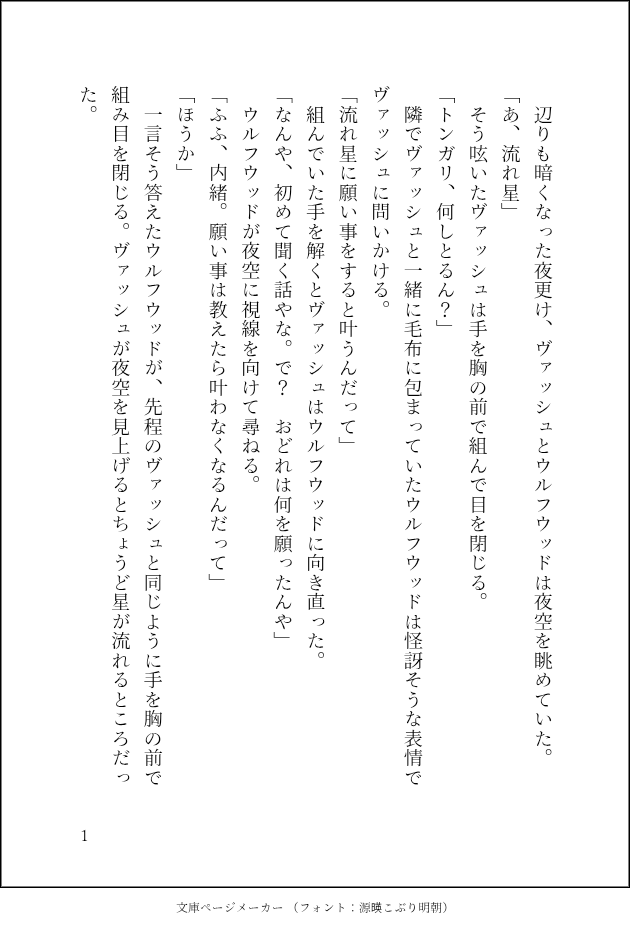 辺りも暗くなった夜更け、ヴァッシュとウルフウッドは夜空を眺めていた。
「あ、流れ星」
そう呟いたヴァッシュは手を胸の前で組んで目を閉じる。
「トンガリ、何しとるん？」
隣でヴァッシュと一緒に毛布に包まっていたウルフウッドは怪訝そうな表情で
ヴァッシュに問いかける。
「流れ星に願い事をすると叶うんだって」
組んでいた手を解くとヴァッシュはウルフウッドに向き直った。
「なんや、初めて聞く話やな。で？　おどれは何を願ったんや」
ウルフウッドが夜空に視線を向けて尋ねる。
「ふふ、内緒。願い事は教えたら叶わなくなるんだって」
「ほうか」
一言そう答えたウルフウッドが、先程のヴァッシュと同じように手を胸の前で
組み目を閉じる。ヴァッシュが夜空を見上げるとちょうど星が流れるところだっ
た。
1
文庫ページメーカー（フォント：源暎こぶり明朝）